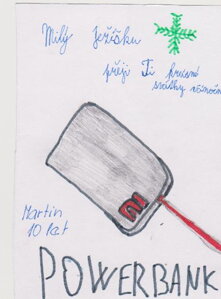 Milý Ježíšku
přeji Ti krásné
svátky vánoční
Martin
10 let
POWERBANK